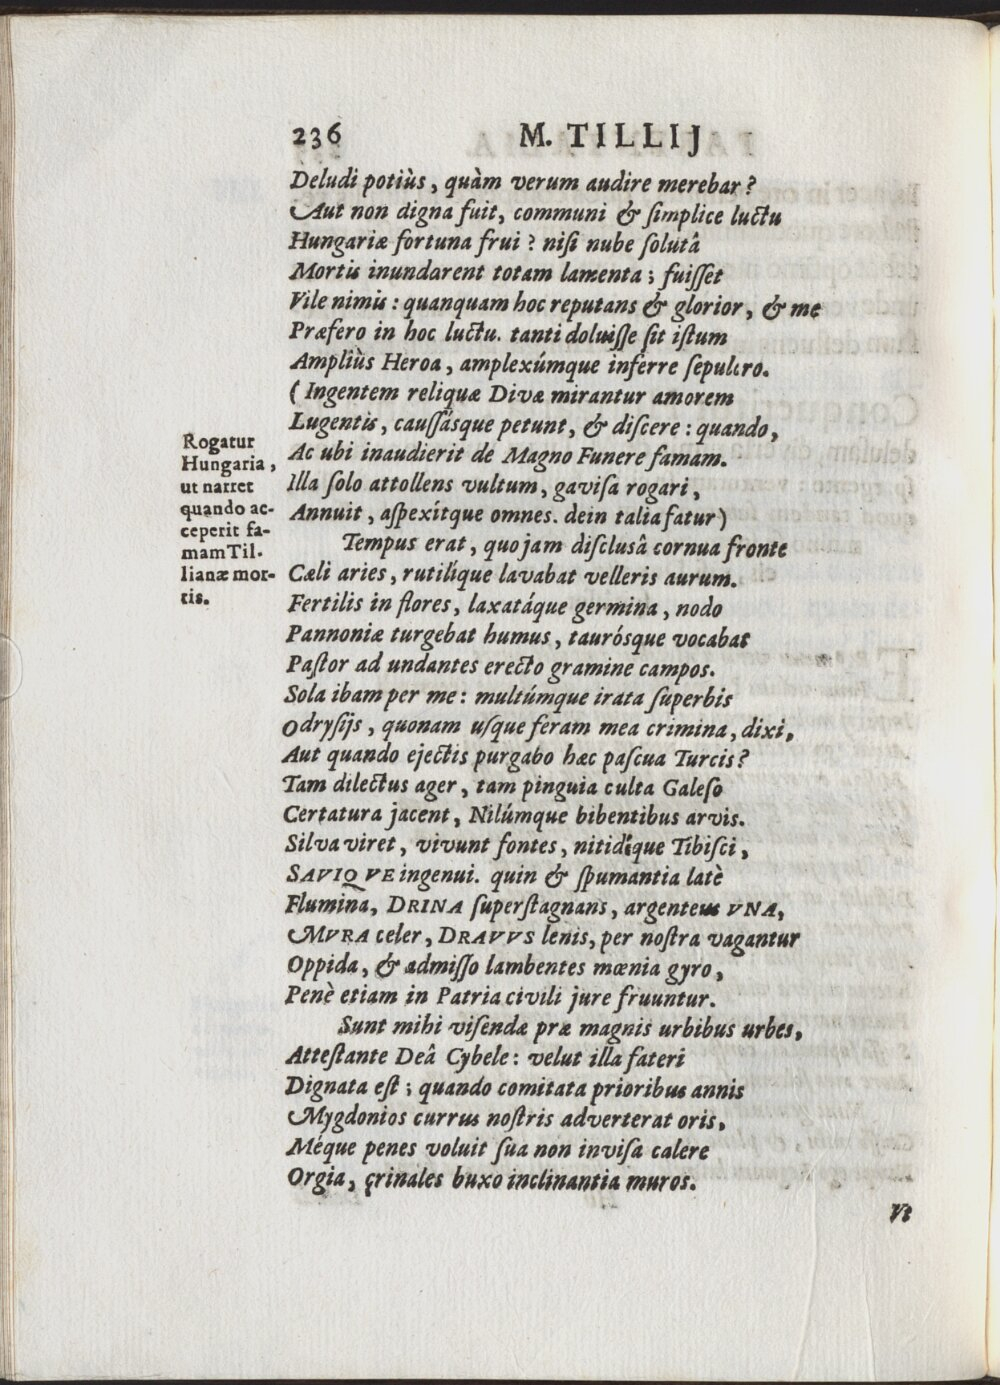 236 M. TILLIJ
Deludi potiùs, quàm verum audire merebar?
Aut non digna fuit, communi & ſimplice luctu
Hungariæ fortuna frui? niſi nube ſolutâ
Mortis inundarent totam lamenta; fuiſſet
Vile nimis: quanquam hoc reputans & glorior, & me
Præfero in hoc luctu. tanti doluiſſe ſit iſtum
Ampliùs Heroa, amplexúmque inferre ſepulcro.
(Ingentem reliquæ Divæ mirantur amorem
Lugentis, cauſſásque petunt, & diſcere: quando,
Ac ubi inaudierit de Magno Funere famam.
Illa ſolo attollens vultum, gaviſa rogari,
Annuit, aſpexítque omnes. dein talia fatur)
Rogatur
Hungaria,
ut narret
quando ac-
ceperit fa-
mam Til-
lianæ mor-
tis.
Tempus erat, quo jam diſcluſâ cornua fronte
Cæli aries, rutilíque lavabat velleris aurum.
Fertilis in flores, laxatáque germina, nodo
Pannoniæ turgebat humus, taurósque vocabat
Paſtor ad undantes erecto gramine campos.
Sola ibam per me: multúmque irata ſuperbis
Odryſijs, quonam uſque feram mea crimina, dixi,
Aut quando ejectis purgabo hæc paſcua Turcis?
Tam dilectus ager, tam pinguia culta Galeſo
Certatura jacent, Nilúmque bibentibus arvis.
Silva viret, vivunt fontes, nitidíque Tibiſci,
SAVIQVE ingenui. quin & ſpumantia latè
Flumina, DRINA ſuperſtagnans, argenteus VNA,
MVRA celer, DRAVVS lenis, per noſtra vagantur
Oppida, & admiſſo lambentes mœnia gyro,
Penè etiam in Patria civili jure fruuntur.
Sunt mihi viſendæ præ magnis urbibus urbes,
Atteſtante Deâ Cybele: velut illa fateri
Dignata eſt; quando comitata prioribus annis
Mygdonios currus noſtris adverterat oris,
Méque penes voluit ſua non inviſa calere
Orgia, çrinales buxo inclinantia muros.
Vt